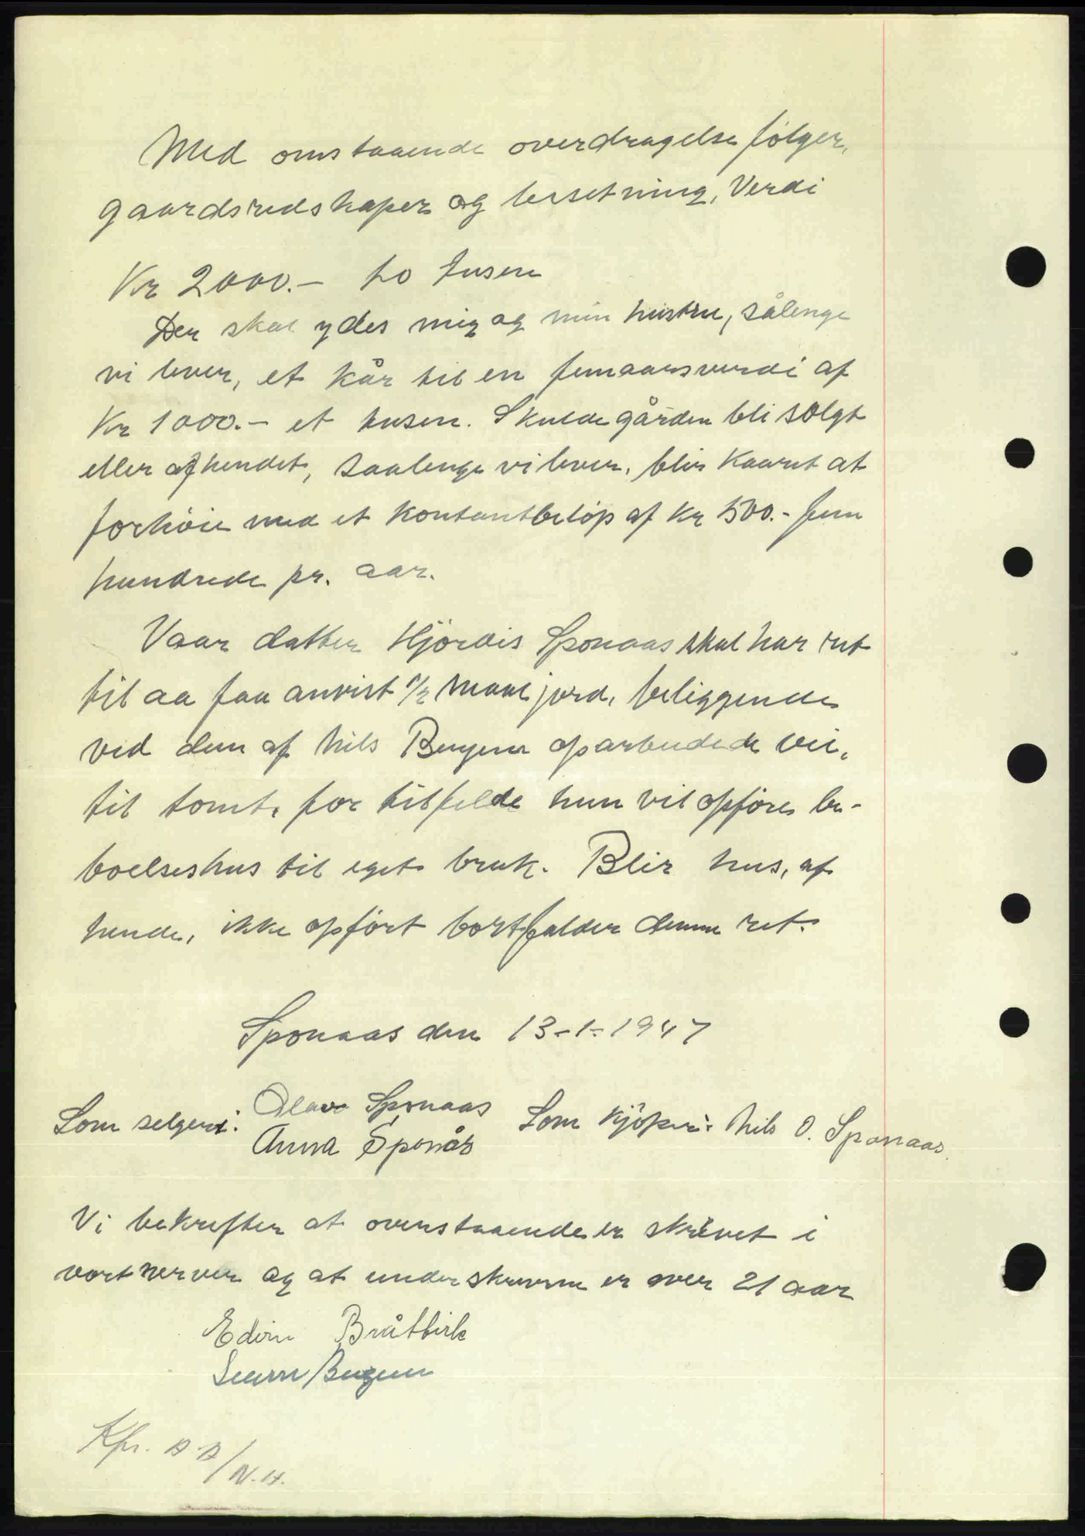 Med omstaaende overdragelse følger,
gaardsredskaper og besetning, Verdi
Kr 2000.- to tusen
Der skal ydes mig og min hustru, sålenge
vi lever, et kår til en femaarsverdi af
Kr 1000.- et tusen. Skulde gården bli solgt
eller afhendet, saalenge vi lever, blir kaaret at
forhöie med et kontantbeløp af Kr 500.- fem
hundrede pr. aar.
Vaar datter Hjördis Sponaas skal har ret
til aa faa anvist 1/2 maal jord, beliggende
ved den af Nils Bergene oparbeidede vei,
til tomt, for tilfelde hun vil opføre be-
boelseshus til eget bruk. Blir hus, af
hende, ikke opført bortfalder denne ret.
Sponaas den 13-1-1947
Som selger: Olav Sponaas Som kjöper: Nils O. Sponaas.
Anna Sponås
Vi bekrefter at ovenstaaende er skrevet i
vort nerver og at underskriverne er over 21 aar
Edvin Bråtbirk
Kfr. B.B/N.H.